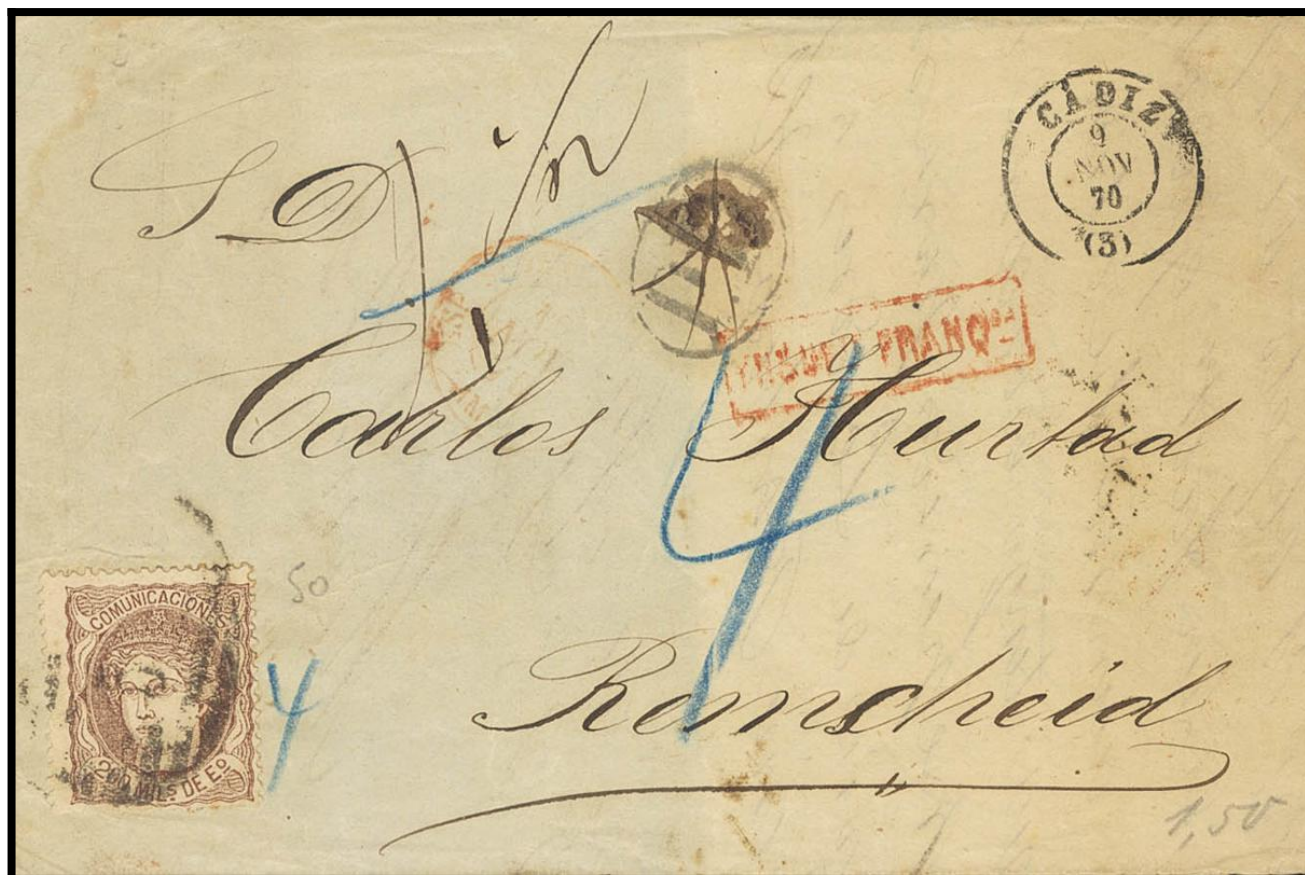 S D
CÁDIZ
9
NOV
70
(3)
FRANQ
Carlos Hurtad
4
50
COMUNICACIONES
200 MILS DE Eo
4
Remscheid
1,50